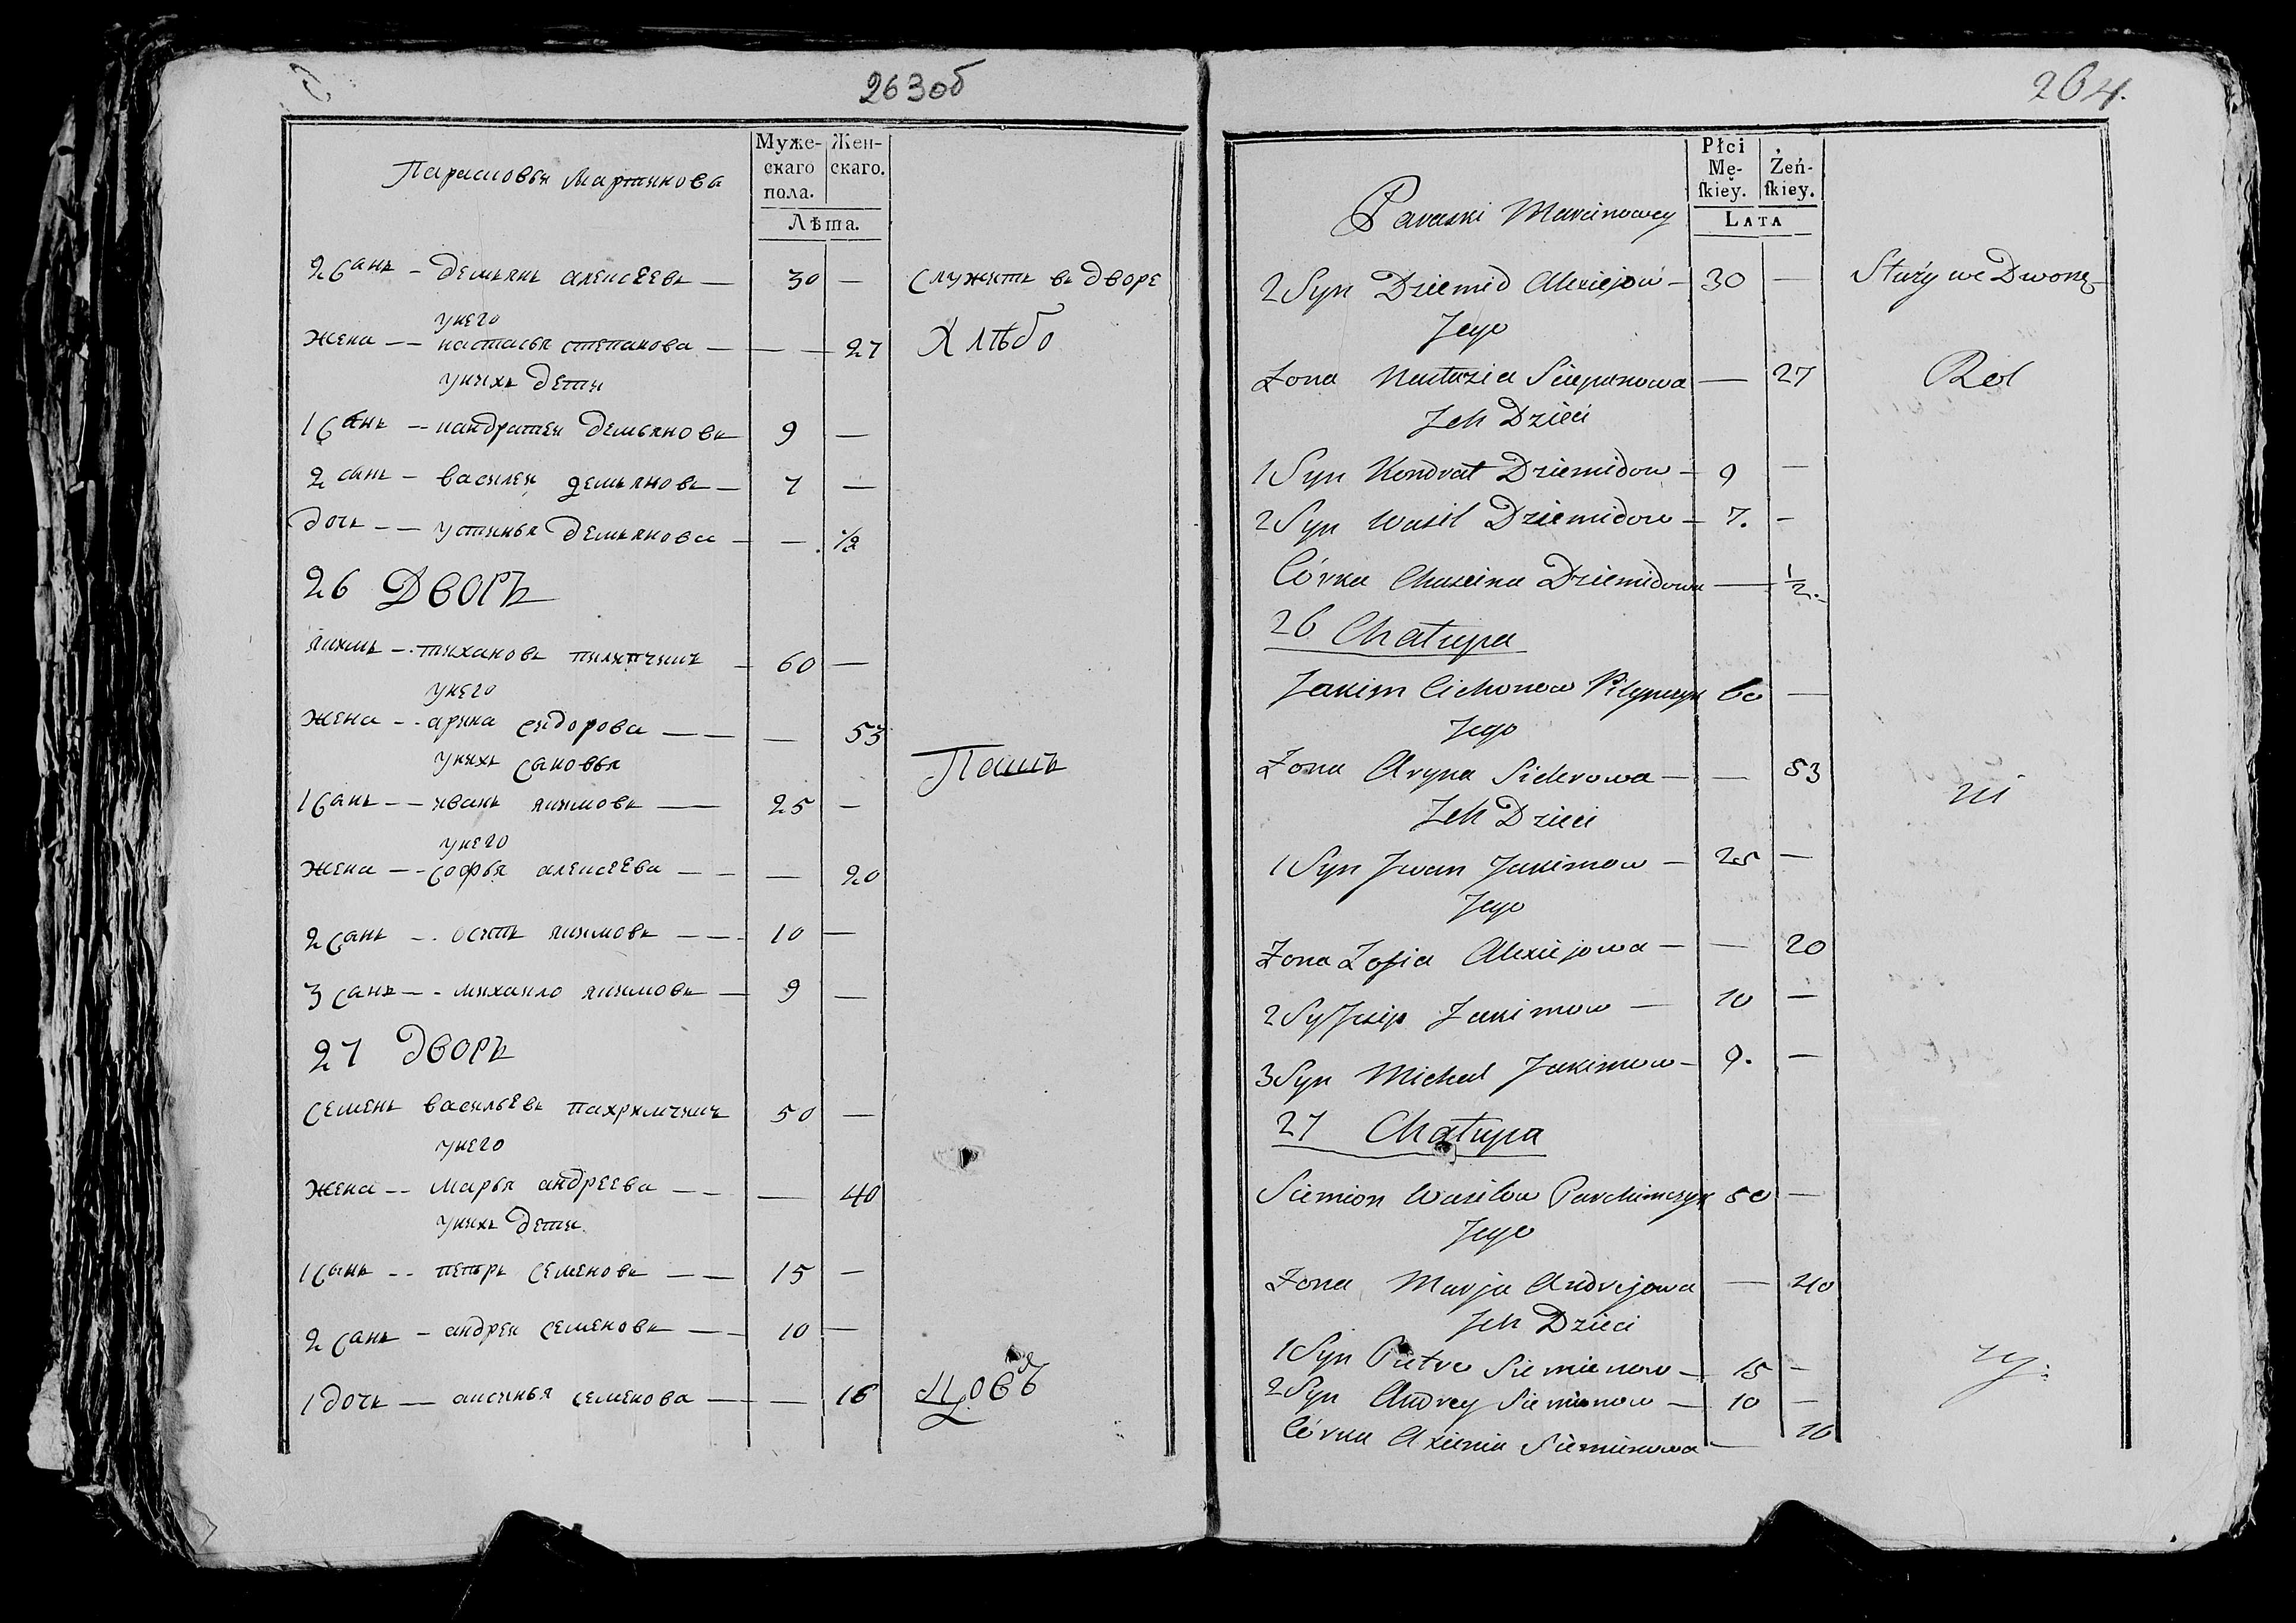 263об
Парасковья Мартинова
Муже-
скаго
пола.
Жен-
скаго.
Лѣта.
2 сынъ – Демьянъ алексеевъ — 30 — служитъ въ дворе
у него
жена — настасья степанова — — 27 Хлѣбо
у нихъ дети
1 сынъ — кандратей Демьяновъ 9 —
2 сынъ – василей Демьяновъ — 7 —
дочь — устинья Демьянова — — 1/2
26 Дворъ
якимъ – тихановъ пилипчикъ – 60 —
у него
жена – арина сидорова — — 53
у нихъ сыновья
Пашъ
1 сынъ — иванъ якимовъ — 25 –
у него
жена — софья алексеева — — 20
2 сынъ – осипъ якимовъ — 10 —
3 сынъ – михаило якимовъ — 9 —
27 дворъ
семенъ васильевъ пахримчикъ 50 —
у него
жена – марья андреева — — 40
у нихъ дети
1 сынъ – петръ семеновъ — 15 —
2 сынъ – андрей семеновъ — 10 —
1 дочь — аксинья семенова — — 16 цовъ
264.
Paraski Marcinowey
Płci
Mę-
ſkiey.
Żeń-
ſkiey.
LATA
2 Syn Dziemid Alexiejow – 30 — Służy we Dworze
Jego
Żona Nastazia Sciepanowa — 27 Rol
Jch Dzieci
1 Syn Kondrat Dziemidow – 9 —
2 Syn Wasil Dziemidow – 7. –
Córka Dziemidowa — 1/2.
26 Chałupa
Jakim Cichonow Pilipczyk 60 —
Jego
Żona Aryna Siderowa — — 53
ni
Jch Dzieci
1 Syn Jwan Jakimow – 25 —
Jego
Żona Zofia Alexiejowa – — 20
2 Sy Jusip Jakimow — 10 —
3 Syn Michał Jakimow – 9. —
27 Chałupa
Siemion Wasilow Parchimczyk 50 —
Jego
Żona Marja Andrejowa — 40
Jch Dzieci
1 Syn Piotro Siemienow – 15 –
2 Syn Andrey Siemienow – 10 –
Córka Axienia Siemienowa — 16